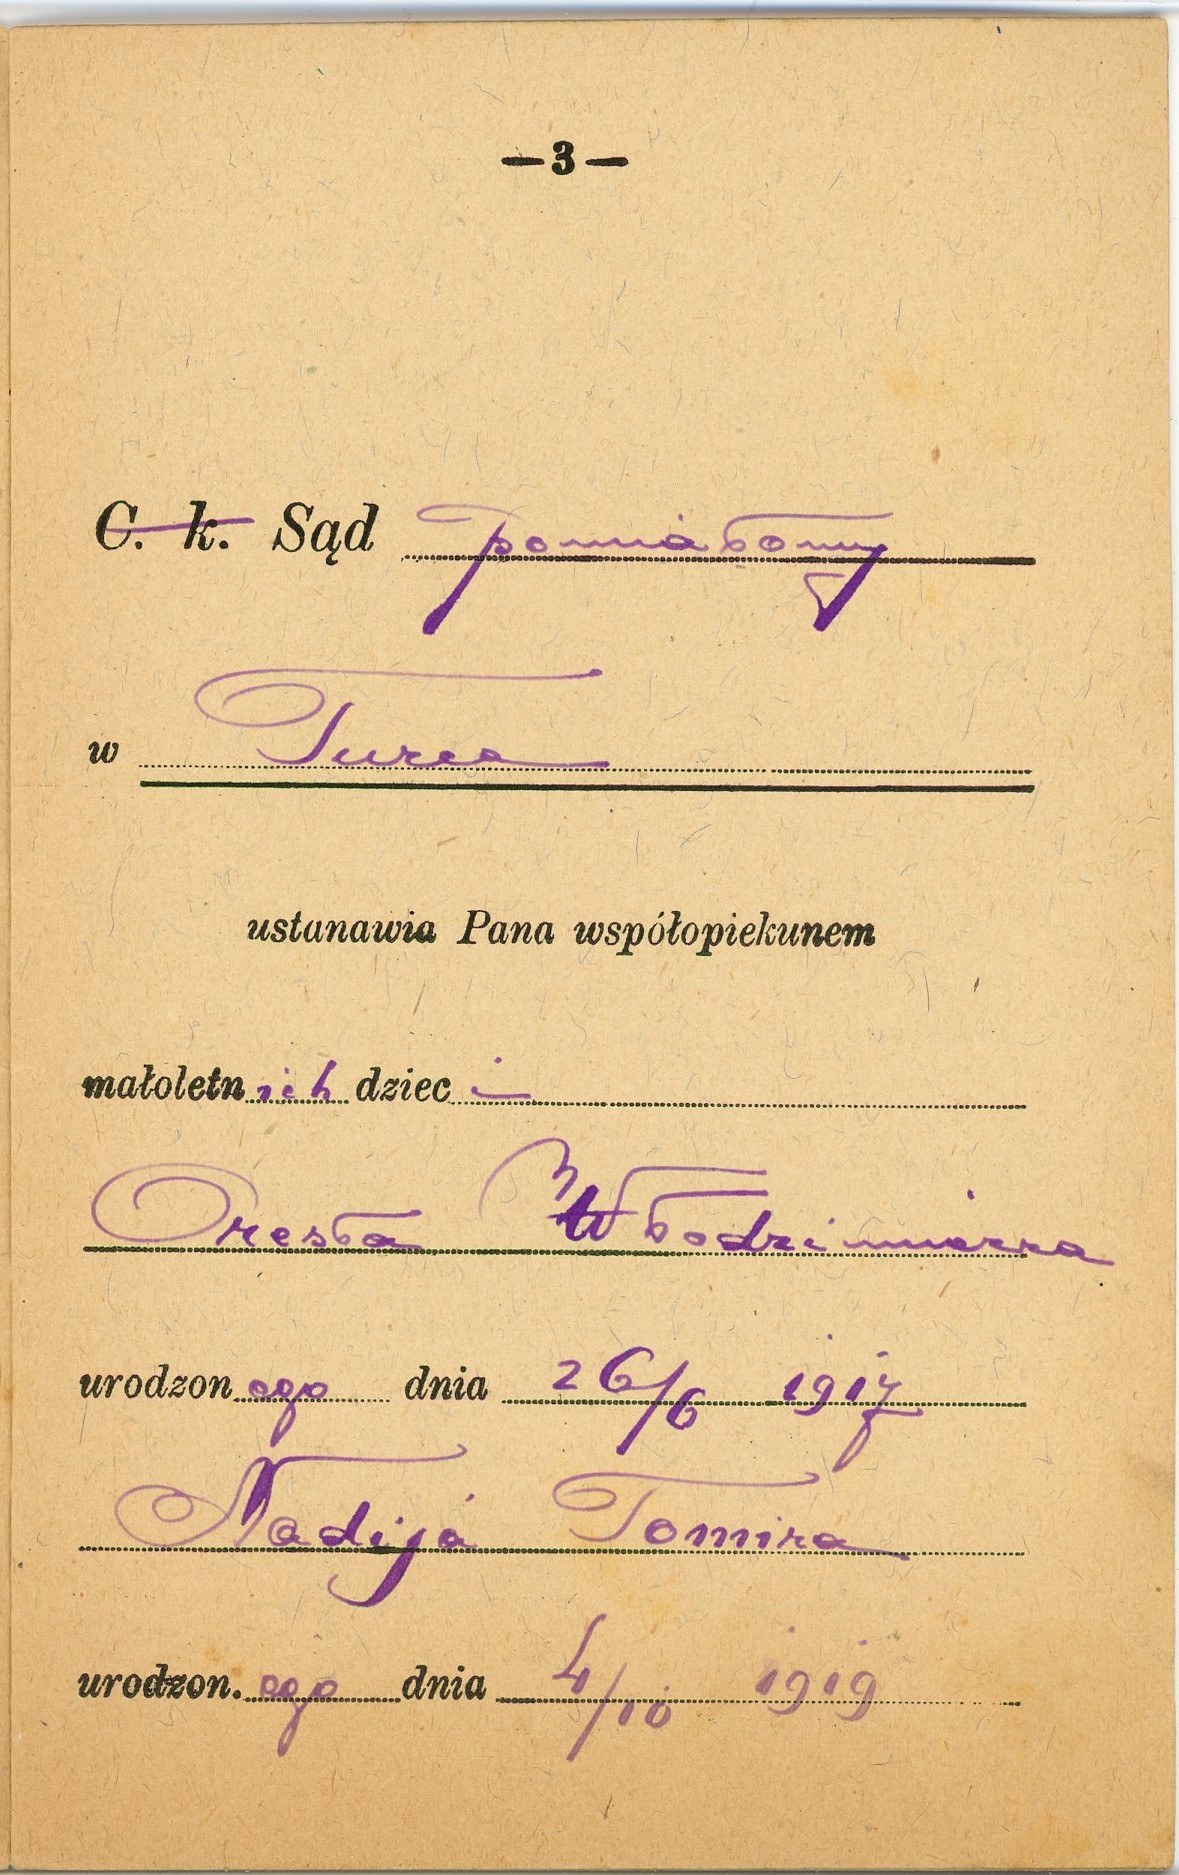 — 3 —
C. k. Sąd powiatowy
w Turce
ustanawia Pana współopiekunem
małoletnich dzieci
Oresta Włodzimierza
urodzonego dnia 26/6 1917
Nadija Tomira
urodzon. ego dnia 4/10 1919